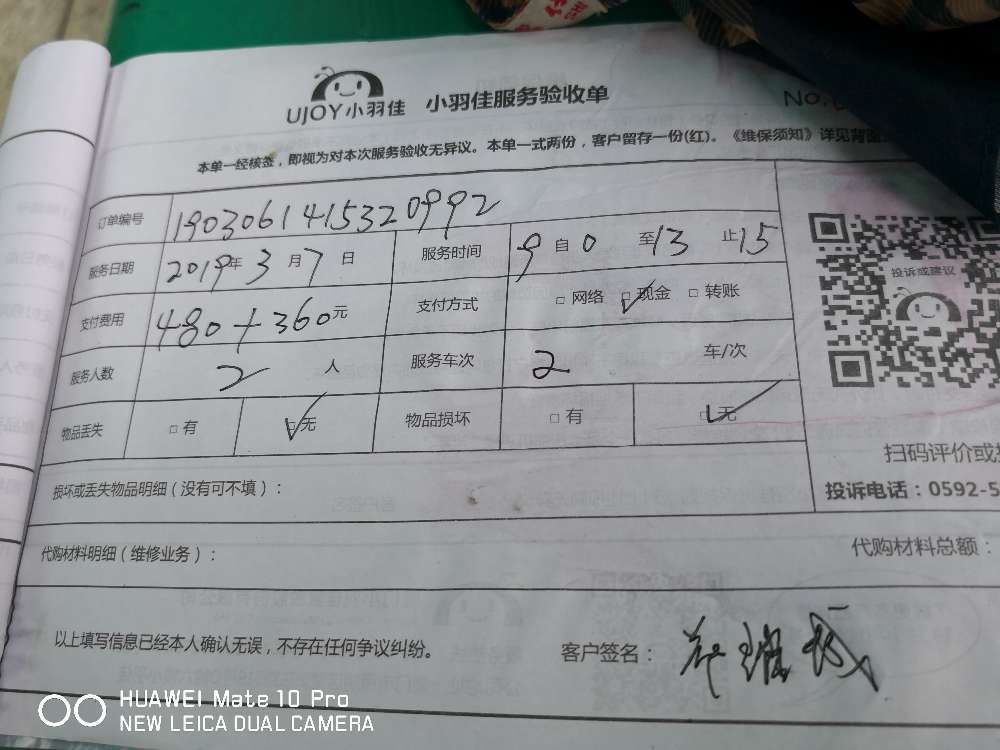 UJOY小羽佳 小羽佳服务验收单 No.
本单一经核签，即视为对本次服务验收无异议。本单一式两份，客户留存一份(红)。《维保须知》详见背面
订单编号 1903061415320992
服务日期 2019年 3 月 7 日 服务时间 9 自 0 至 13 止 15
投诉或建议
支付费用 480+360元 支付方式 □ 网络 ☑ 现金 □ 转账
服务人数 2 人 服务车次 2 车/次
物品丢失 □ 有 ☑ 无 物品损坏 □ 有 ☑ 无
扫码评价或
损坏或丢失物品明细（没有可不填）：
投诉电话：0592-5
代购材料明细（维修业务）： 代购材料总额：
以上填写信息已经本人确认无误，不存在任何争议纠纷。 客户签名：
HUAWEI Mate 10 Pro
NEW LEICA DUAL CAMERA